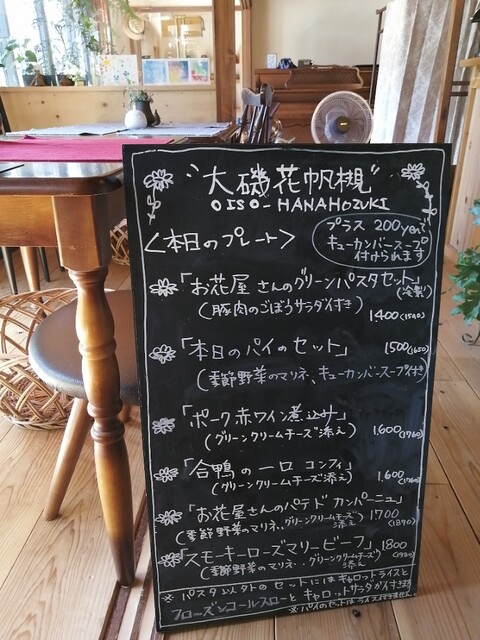 "大磯花帆槻"
OISO-HANAHOZUKI
<本日のプレート>
プラス 200yenで
キューカンバースープ
付けられます
「お花屋さんのグリーンパスタセット」
(冷製)
(豚肉のごぼうサラダ付き)
1,400(1540)
「本日のパイのセット」 1500(1650)
(季節野菜のマリネ、キューカンバースープ付き)
「ポーク赤ワイン煮込み」
(グリーンクリームチーズ添え) 1,600(1760)
「合鴨の一口コンフィ」
(グリーンクリームチーズ添え) 1,600(1760)
「お花屋さんのパテドカンパーニュ」
(季節野菜のマリネ、グリーンクリームチーズ添え) 1,700(1870)
「スモーキーローズマリービーフ」 1,800
(季節野菜のマリネ、グリーンクリームチーズ添え)
※パスタ以外のセットにはキャロットライスと
フローズンコールスローとキャロットサラダが付きます
※パイのセットはライス付きません